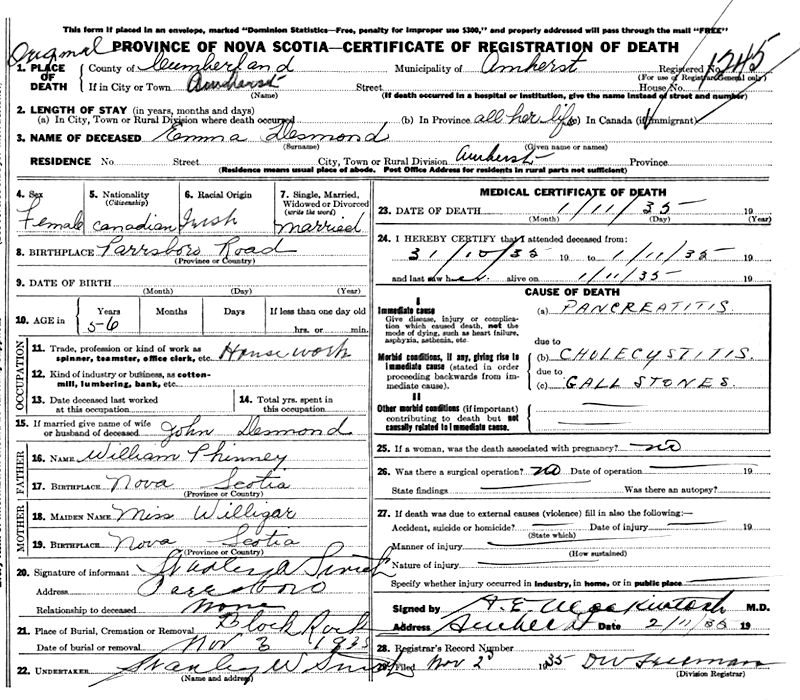 This form if placed in an envelope, marked "Dominion Statistics—Free, penalty for improper use $300," and properly addressed will pass through the mail "FREE"
Original PROVINCE OF NOVA SCOTIA—CERTIFICATE OF REGISTRATION OF DEATH
1. PLACE OF DEATH County of Cumberland Municipality of Amherst Registered No. 1245
(For use of Registrar General only)
If in City or Town Amherst Street House No.
(Name) (If death occurred in a hospital or institution, give the name instead of street and number)
2. LENGTH OF STAY (in years, months and days)
(a) In City, Town or Rural Division where death occurred (b) In Province all her life (c) In Canada (if immigrant)
3. NAME OF DECEASED Emma Desmond
(Surname) (Given name or names)
RESIDENCE No. Street City, Town or Rural Division Amherst Province
(Residence means usual place of abode. Post Office Address for residents in rural parts not sufficient)
4. Sex Female
5. Nationality (Citizenship) Canadian
6. Racial Origin Irish
7. Single, Married, Widowed or Divorced (write the word) married
8. BIRTHPLACE Parrsboro Road
(Province or Country)
9. DATE OF BIRTH
(Month) (Day) (Year)
10. AGE in Years 56 Months Days If less than one day old
hrs. or min.
OCCUPATION
11. Trade, profession or kind of work as spinner, teamster, office clerk, etc. House work
12. Kind of industry or business, as cotton-mill, lumbering, bank, etc.
13. Date deceased last worked at this occupation
14. Total yrs. spent in this occupation
15. If married give name of wife or husband of deceased John Desmond
FATHER
16. NAME William Phinney
17. BIRTHPLACE Nova Scotia
(Province or Country)
MOTHER
18. MAIDEN NAME Miss Willigar
19. BIRTHPLACE Nova Scotia
(Province or Country)
20. Signature of informant Stanley W Smith
Address Parrsboro
Relationship to deceased none
21. Place of Burial, Cremation or Removal Block Rock
Date of burial or removal Nov 3 1935
22. UNDERTAKER Stanley W Smith
(Name and address)
MEDICAL CERTIFICATE OF DEATH
23. DATE OF DEATH 1/11/35 19
(Month) (Day) (Year)
24. I HEREBY CERTIFY that I attended deceased from:
31/10/35 19 to 1/11/35 19
and last saw her alive on 1/11/35 19
CAUSE OF DEATH
I
Immediate cause
Give disease, injury or complication which caused death, not the mode of dying, such as heart failure, asphyxia, asthenia, etc.
(a) PANCREATITIS.
due to
Morbid conditions, if any, giving rise to immediate cause (stated in order proceeding backwards from immediate cause).
(b) CHOLECYSTITIS.
due to
(c) GALL STONES.
II
Other morbid conditions (if important) contributing to death but not causally related to immediate cause.
25. If a woman, was the death associated with pregnancy? no
26. Was there a surgical operation? no Date of operation 19
State findings Was there an autopsy?
27. If death was due to external causes (violence) fill in also the following:—
Accident, suicide or homicide? Date of injury 19
(State which)
Manner of injury
(How sustained)
Nature of injury
Specify whether injury occurred in industry, in home, or in public place
Signed by M.D.
Address Amherst Date 2/11/35 19
28. Registrar's Record Number
29. Filed Nov 2d 1935 DW Freeman
(Division Registrar)